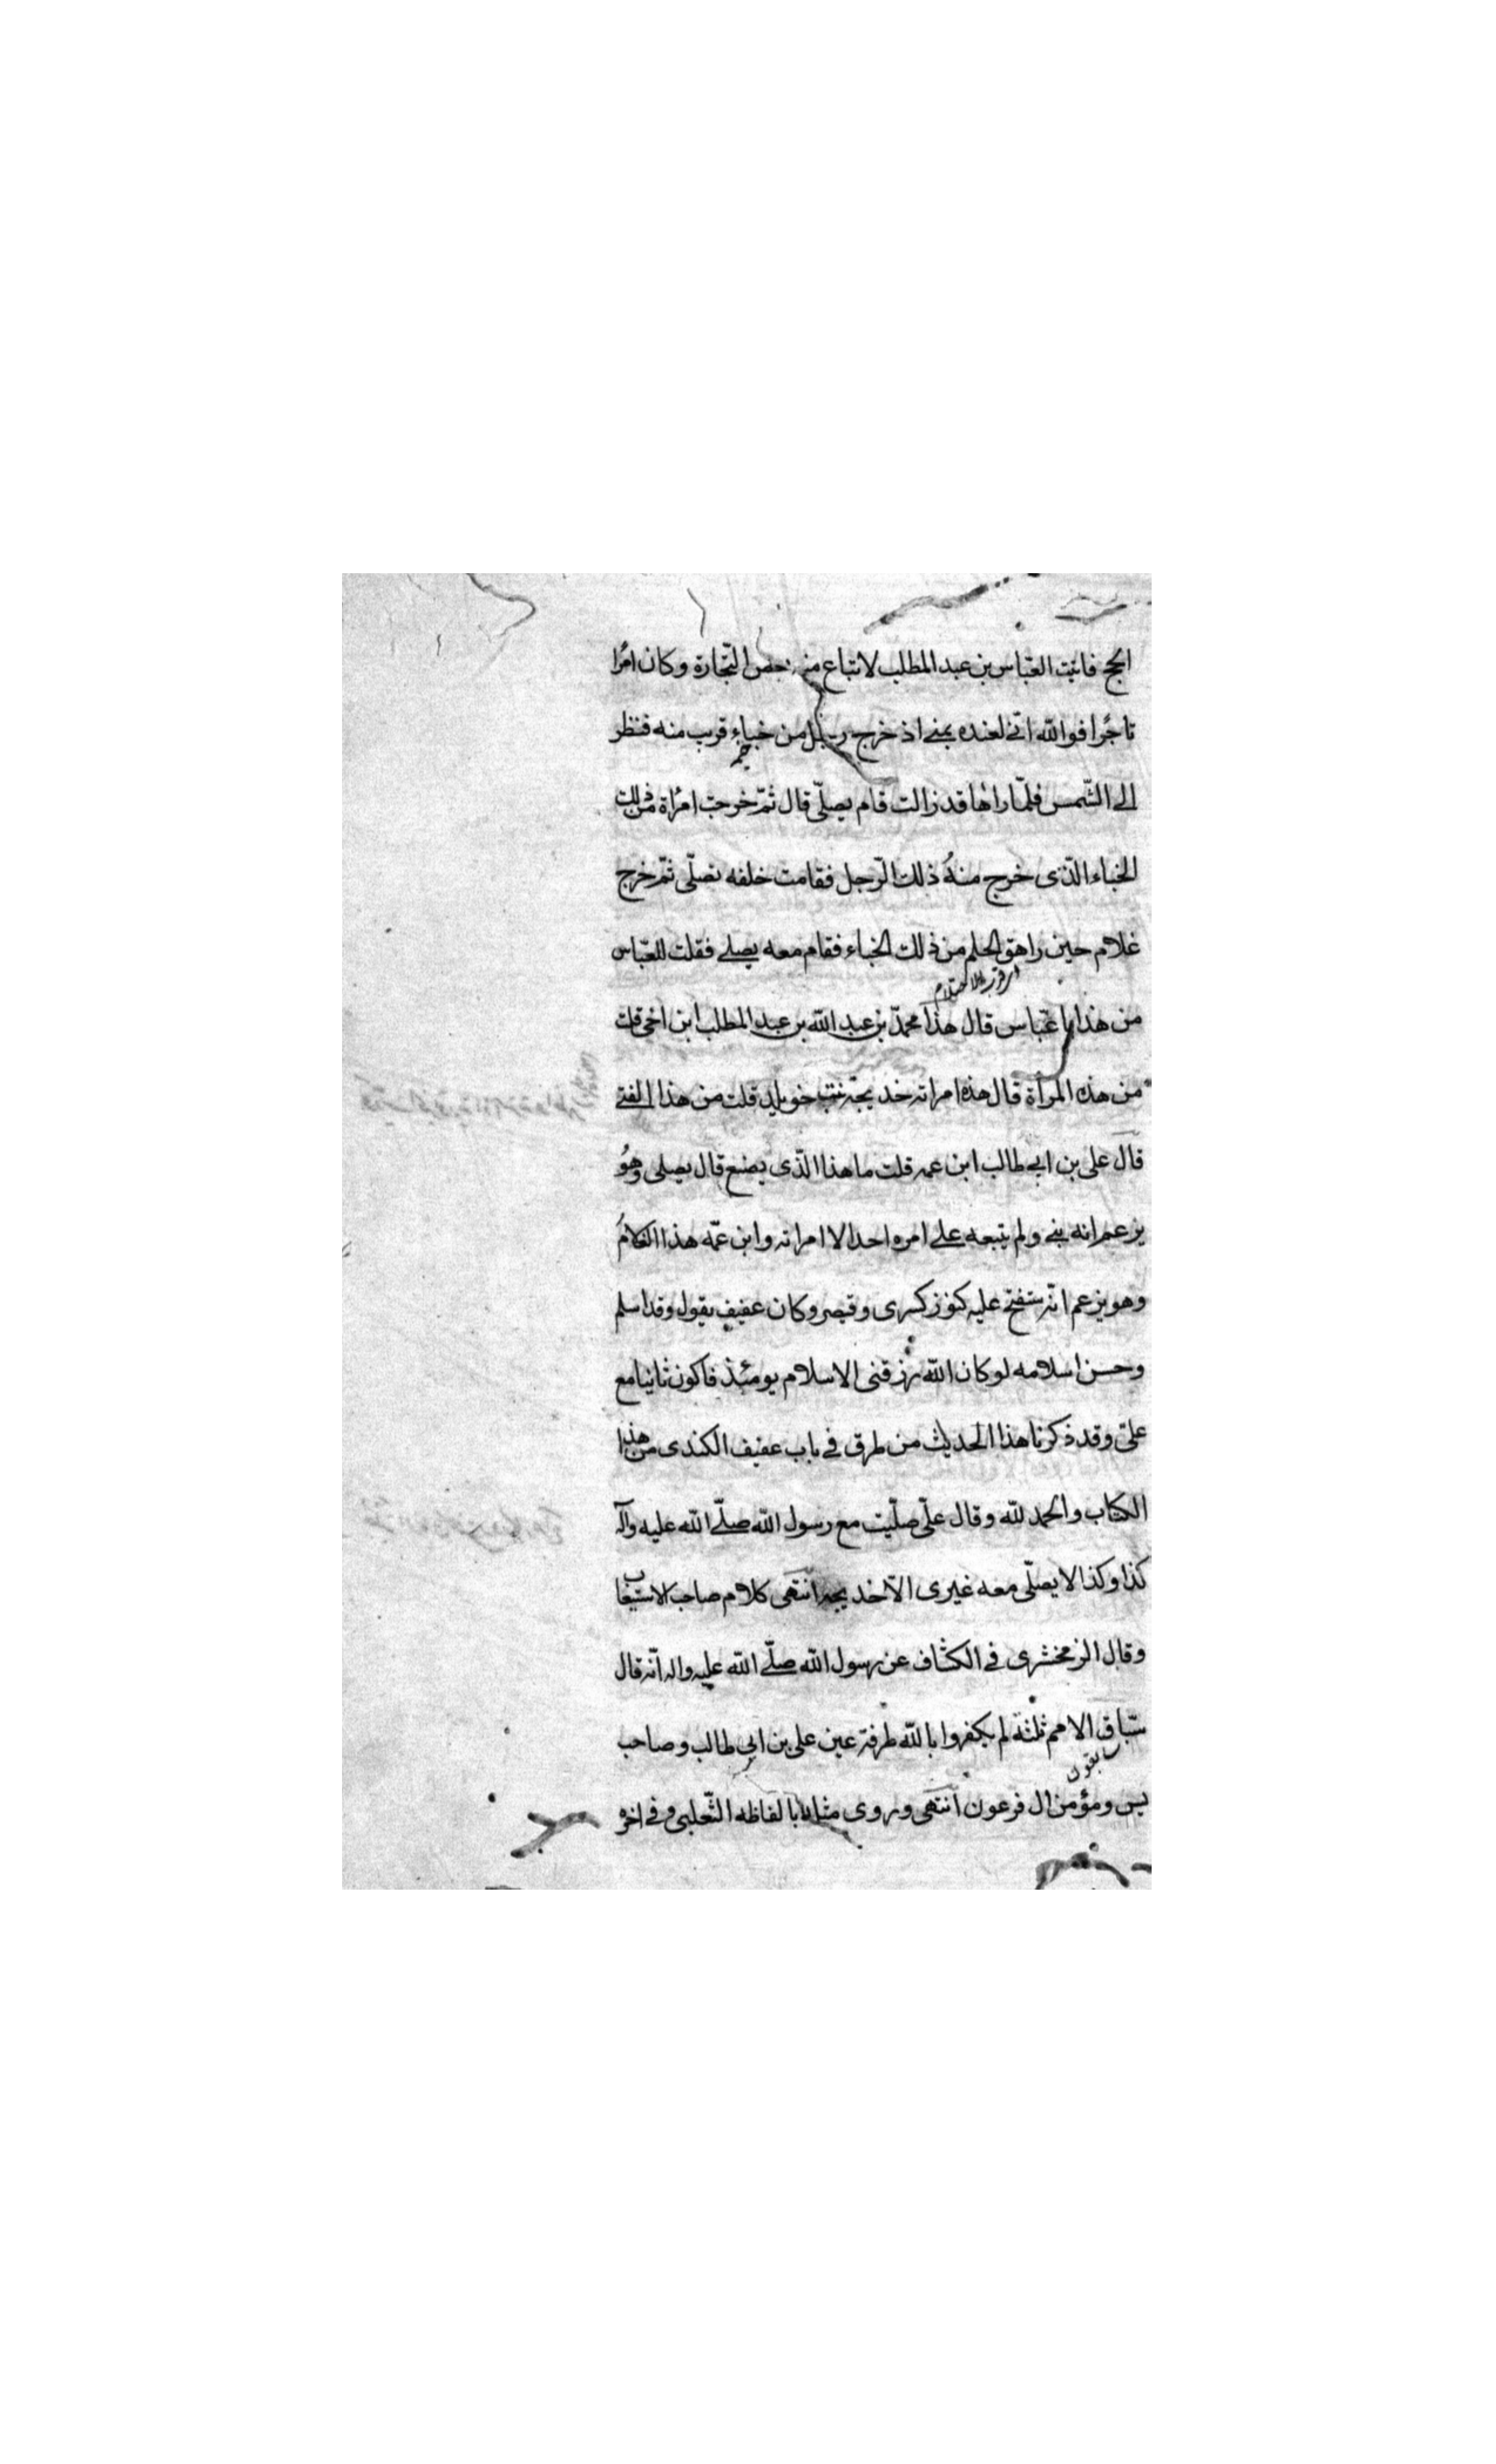 الحج فاتيت العبّاس بن عبد المطلب لابتاع منه بعض التّجارة وكان امرًا
تاجرًا فوالله انّى لعنده بمنى اذ خرج رجل من خباءٍ قرب منه فنظر
الى الشّمس فلمّا راٰها قد زالت قام يصلّى قال ثمّ خرجت امرأة من ذلك
الخباء الّذى خرج منهُ ذلك الرّجل فقامت خلفه تصلّى ثمّ خرج
غلام حين راهق الحلم من ذلك الخباء فقام معه يصلى فقلت للعبّاس
من هذا يا عبّاس قال هذا محمّد بن عبد الله بن عبد المطلب ابن اخى قلت
من هذه المرأة قال هذه امراته خديجة بنت خويلد قلت من هذا الفتى
قال على بن ابى طالب ابن عمه قلت ما هذا الّذى يصنع قال يصلى وهُو
يزعم انه نبى ولم يتبعه على امره احد الا امراته وابن عمّه هذا الغلامُ
وهو يزعم انّه ستفتح عليه كنوز كسرى وقيصر وكان عفيف يقول وقد اسلم
وحسن اسلامه لو كان الله رزقنى الاسلام يومئذ فاكون ثانيا مع
علىّ وقد ذكرنا هذا الحديث من طرق فى باب عفيف الكندى من هذا
الكتاب والحمد لله وقال علىّ صلّيت مع رسول الله صلّى الله عليه وآله
كذا وكذا لا يصلّى معه غيرى الّا خديجة انتهى كلام صاحب الاستيعاب
وقال الزمخشرى فى الكشّاف عن رسول الله صلّى الله عليه واله انّه قال
سبّاق الامم ثلثة لم يكفروا بالله طرفة عين على بن ابى طالب وصاحب
يس ومؤمن ال فرعون انتهى وروى مثله بالفاظه الثّعلبى وفى اخره